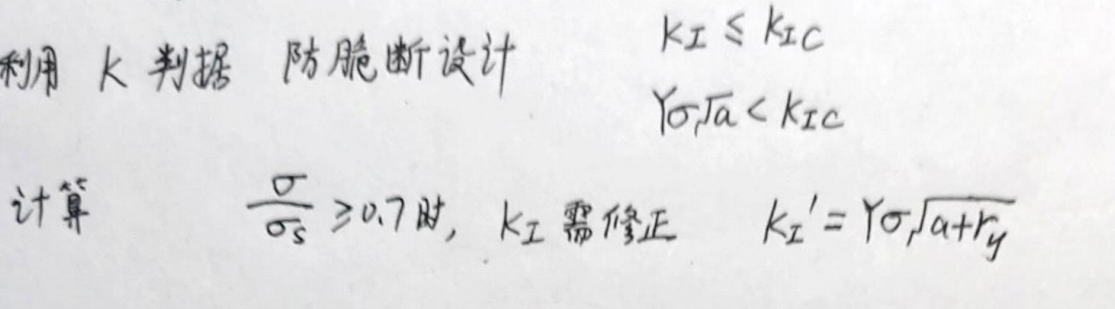 利用 K 判据 防脆断设计 K_I ≤ K_IC
Yσ√a < K_IC
计算 σ/σ_s ≥ 0.7时, K_I 需修正 K_I' = Yσ√(a+r_y)